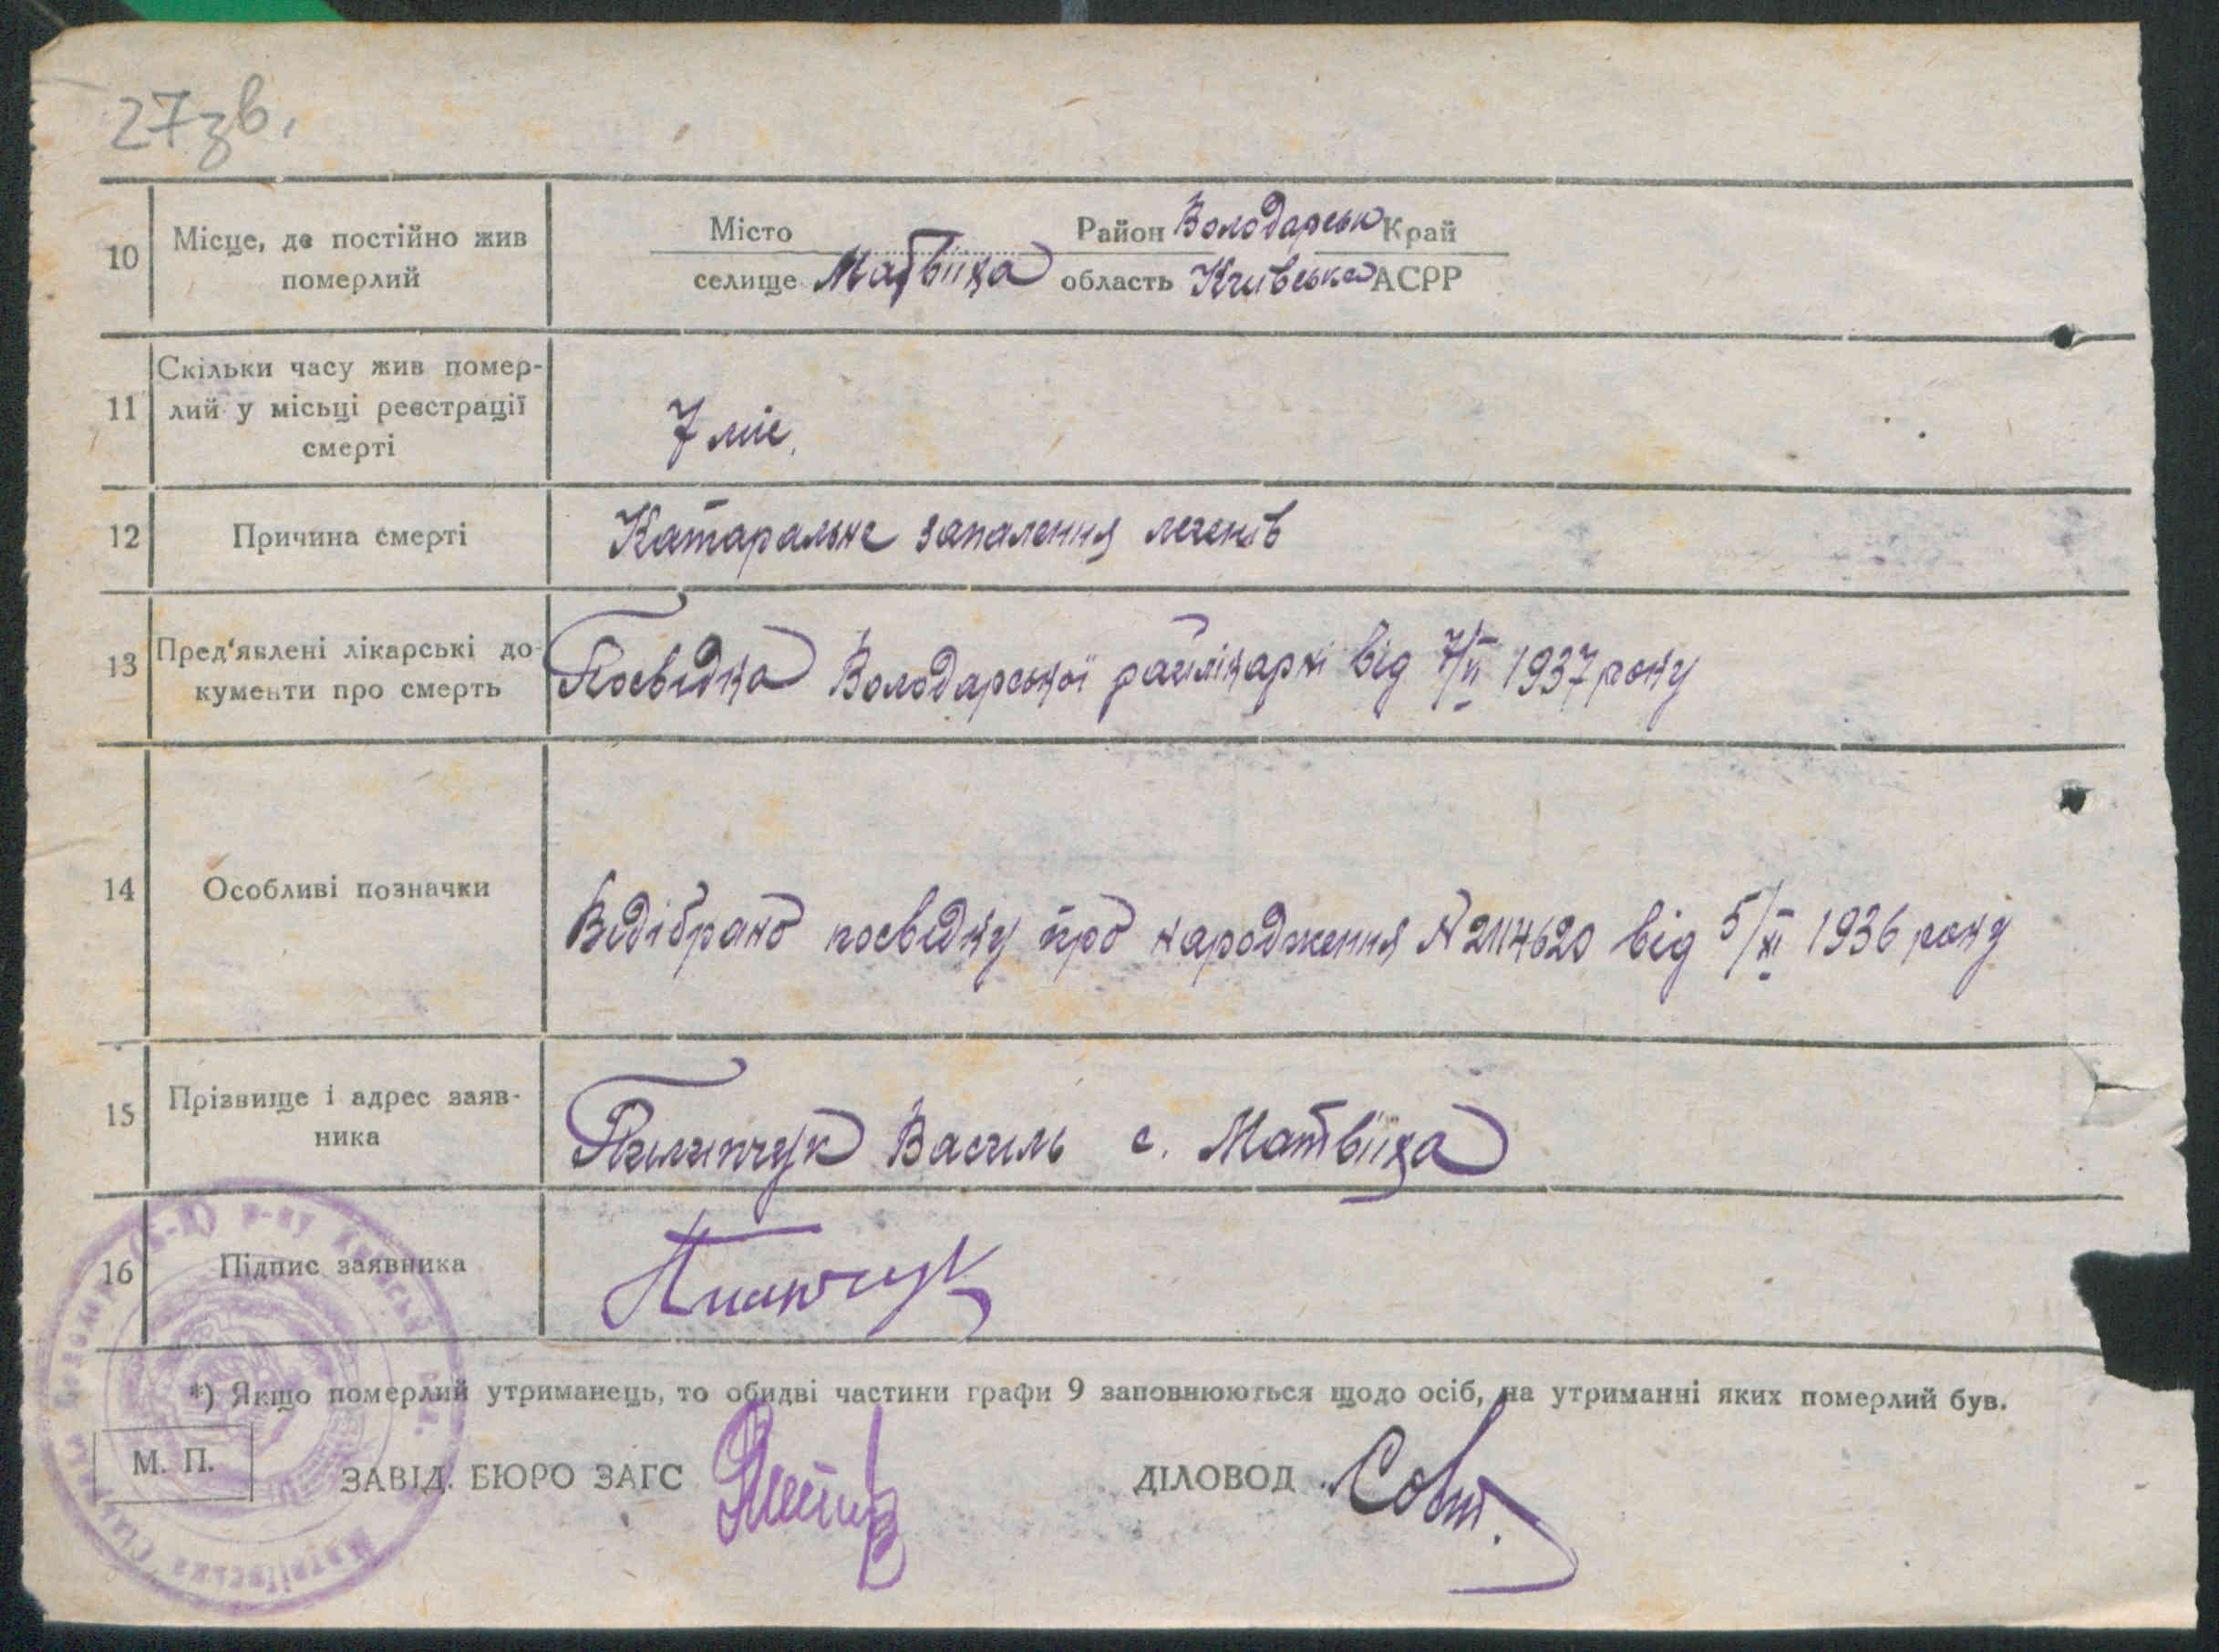 27зв.
10 Місце, де постійно жив померлий
Місто Район Володарськ Край
селище Матвіїха область Київська АСРР
11 Скільки часу жив помер-
лий у місьці реєстрації
смерті
7 міс.
12 Причина смерті Катаральне запалення легенів
13 Пред'явлені лікарські до-
кументи про смерть
Посвідка Володарської райлікарні від 7/VI 1937 року
14 Особливі позначки
Відібрано посвідку про народження N 2114620 від 5/XI 1936 року
15 Прізвище і адрес заяв-
ника
Пилипчук Василь с. Матвіїха
16 Підпис заявника Пилипчук
*) Якщо померлий утриманець, то обидві частини графи 9 заповнюються щодо осіб, на утриманні яких померлий був.
М. П.
ЗАВІД. БЮРО ЗАГС
ДІЛОВОД